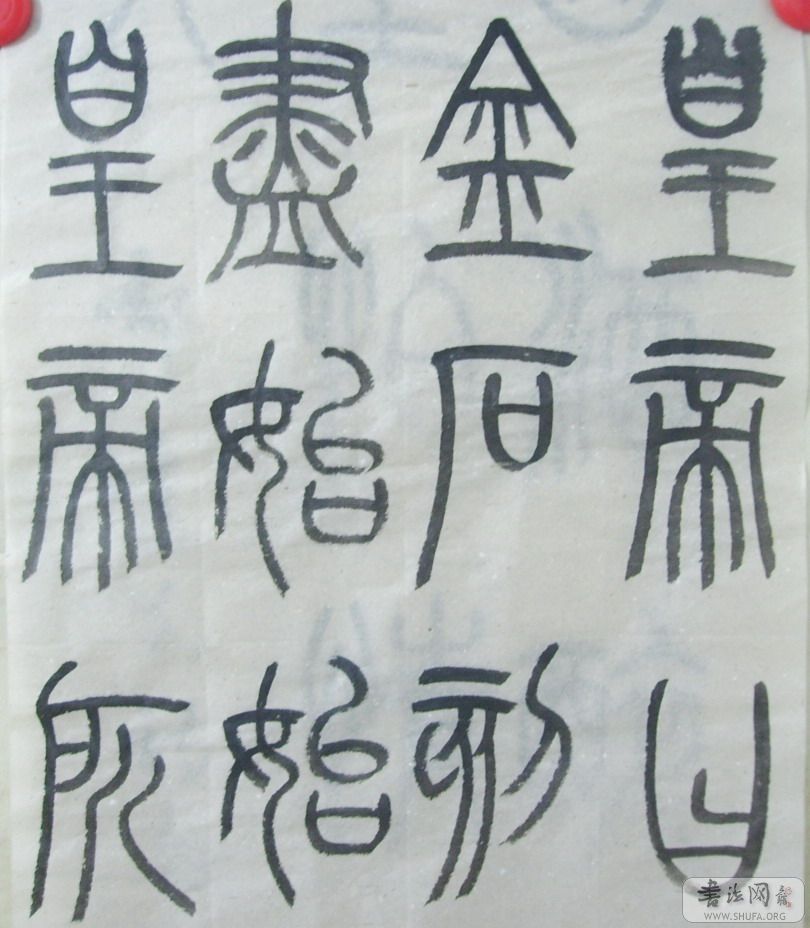 皇帝曰
金石刻
盡始始
皇帝所
書法网
WWW.SHUFA.ORG